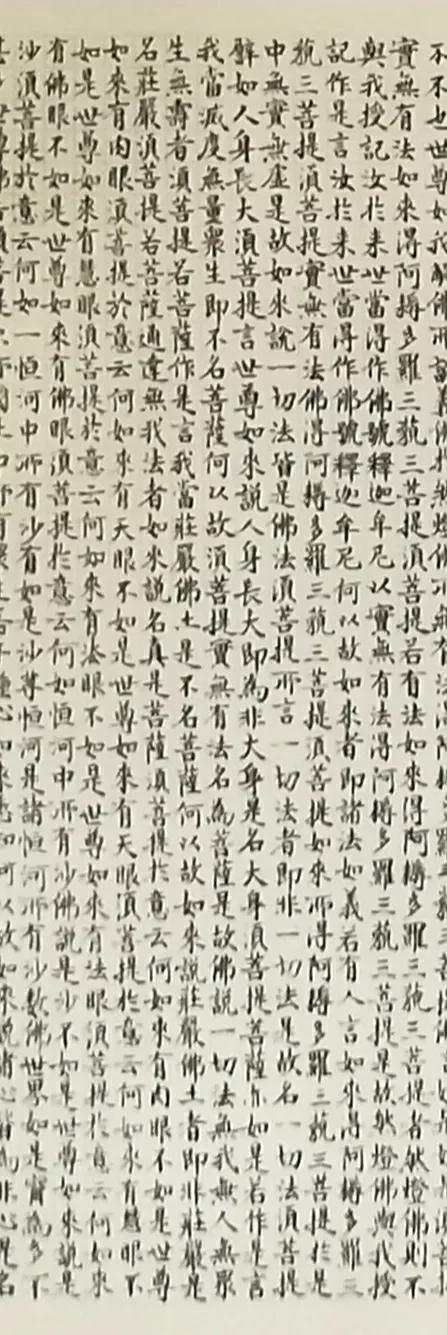 不不也世尊如我解佛所
實無有法如來得阿耨多羅三藐三菩提須菩提若有法如來得阿耨多羅三藐三菩提者然燈佛則不
與我授記汝於來世當得作佛號釋迦牟尼以實無有法得阿耨多羅三藐三菩提是故然燈佛與我授
記作是言汝於來世當得作佛號釋迦牟尼何以故如來者即諸法如義若有人言如來得阿耨多羅三
藐三菩提須菩提實無有法佛得阿耨多羅三藐三菩提須菩提如來所得阿耨多羅三藐三菩提於是
中無實無虛是故如來說一切法皆是佛法須菩提所言一切法者即非一切法是故名一切法須菩提
譬如人身長大須菩提言世尊如來說人身長大即為非大身是名大身須菩提菩薩亦如是若作是言
我當滅度無量眾生即不名菩薩何以故須菩提實無有法名為菩薩是故佛說一切法無我無人無眾
生無壽者須菩提若菩薩作是言我當莊嚴佛土是不名菩薩何以故如來說莊嚴佛土者即非莊嚴是
名莊嚴須菩提若菩薩通達無我法者如來說名真是菩薩須菩提於意云何如來有肉眼不如是世尊
如來有肉眼須菩提於意云何如來有天眼不如是世尊如來有天眼須菩提於意云何如來有慧眼不
如是世尊如來有慧眼須菩提於意云何如來有法眼不如是世尊如來有法眼須菩提於意云何如來
有佛眼不如是世尊如來有佛眼須菩提於意云何如恒河中所有沙佛說是沙不如是世尊如來說是
沙須菩提於意云何如一恒河中所有沙有如是沙等恒河是諸恒河所有沙數佛世界如是寧為多不